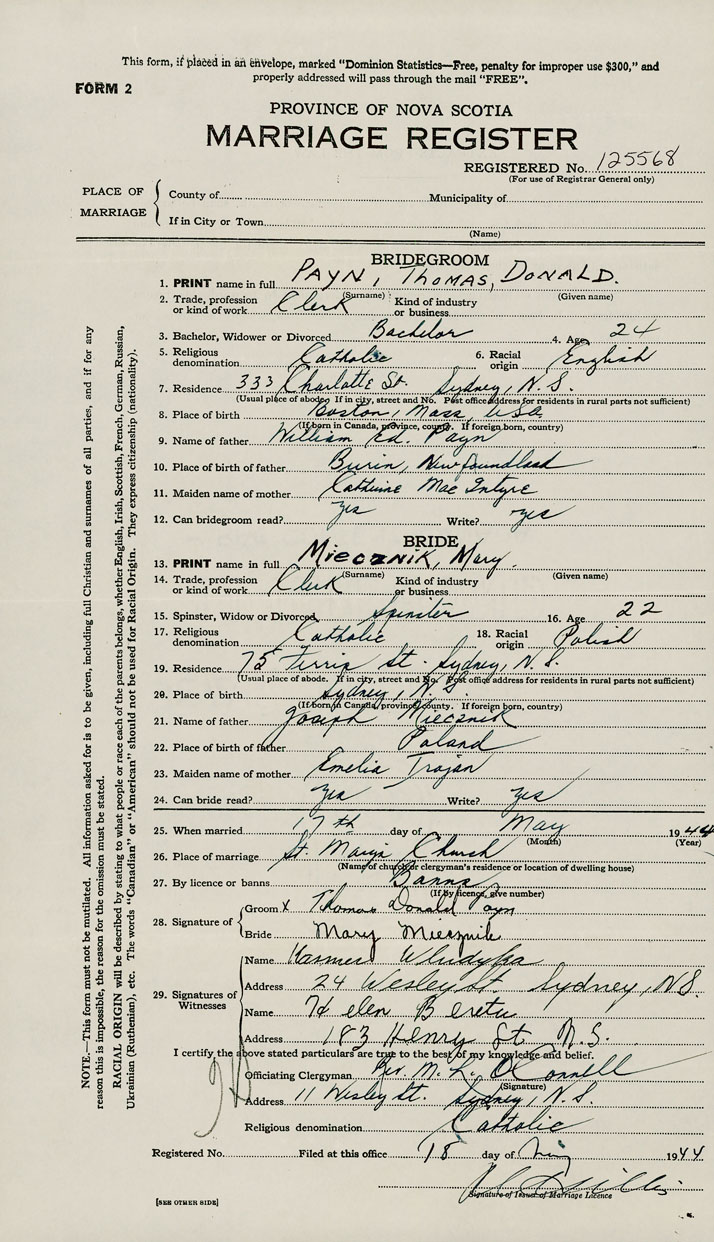 This form, if placed in an envelope, marked "Dominion Statistics—Free, penalty for improper use $300," and
properly addressed will pass through the mail "FREE".
FORM 2
PROVINCE OF NOVA SCOTIA
MARRIAGE REGISTER
REGISTERED No. 125568
(For use of Registrar General only)
PLACE OF MARRIAGE
County of Municipality of
If in City or Town
(Name)
BRIDEGROOM
1. PRINT name in full PAYN, THOMAS, DONALD.
(Surname) (Given name)
2. Trade, profession or kind of work Clerk Kind of industry or business
3. Bachelor, Widower or Divorced Bachelor 4. Age 24
5. Religious denomination Catholic 6. Racial origin English
7. Residence 333 Charlotte St. Sydney, N.S.
(Usual place of abode. If in city, street and No. Post office address for residents in rural parts not sufficient)
8. Place of birth Boston, Mass, USA
(If born in Canada, province, county. If foreign born, country)
9. Name of father William Ed. Payn
10. Place of birth of father Burin, Newfoundland
11. Maiden name of mother Catherine Mac Intyre
12. Can bridegroom read? yes Write? yes
BRIDE
13. PRINT name in full Miecznik, Mary.
(Surname) (Given name)
14. Trade, profession or kind of work Clerk Kind of industry or business
15. Spinster, Widow or Divorced Spinster 16. Age 22
17. Religious denomination Catholic 18. Racial origin Polish
19. Residence 75 Ferris St. Sydney, N.S.
(Usual place of abode. If in city, street and No. Post office address for residents in rural parts not sufficient)
20. Place of birth Sydney, N.S.
(If born in Canada, province, county. If foreign born, country)
21. Name of father Joseph Miecznik
22. Place of birth of father Poland
23. Maiden name of mother Emelia Trojan
24. Can bride read? yes Write? yes
25. When married 17th day of May 1944
(Month) (Year)
26. Place of marriage St Marys Church
(Name of church or clergyman's residence or location of dwelling house)
27. By licence or banns Banns
(If by licence, give number)
28. Signature of
Groom X Thomas Donald Payn
Bride Mary Miecznik
29. Signatures of Witnesses
Name
Address 24 Wesley St. Sydney, N.S.
Name Helen
Address 183 Henry St N.S.
I certify the above stated particulars are true to the best of my knowledge and belief.
Officiating Clergyman Rev. M. L. O'Connell
(Signature)
Address 11 Wesley St. Sydney, N.S.
Religious denomination Catholic
Registered No. Filed at this office 18 day of 1944
Signature of Issuer of Marriage Licence
[SEE OTHER SIDE]
NOTE.—This form must not be mutilated. All information asked for is to be given, including full Christian and surnames of all parties, and if for any
reason this is impossible, the reason for the omission must be stated.
RACIAL ORIGIN will be described by stating to what people or race each of the parents belongs, whether English, Irish, Scottish, French, German, Russian,
Ukrainian (Ruthenian), etc. The words "Canadian" or "American" should not be used for Racial Origin. They express citizenship (nationality).